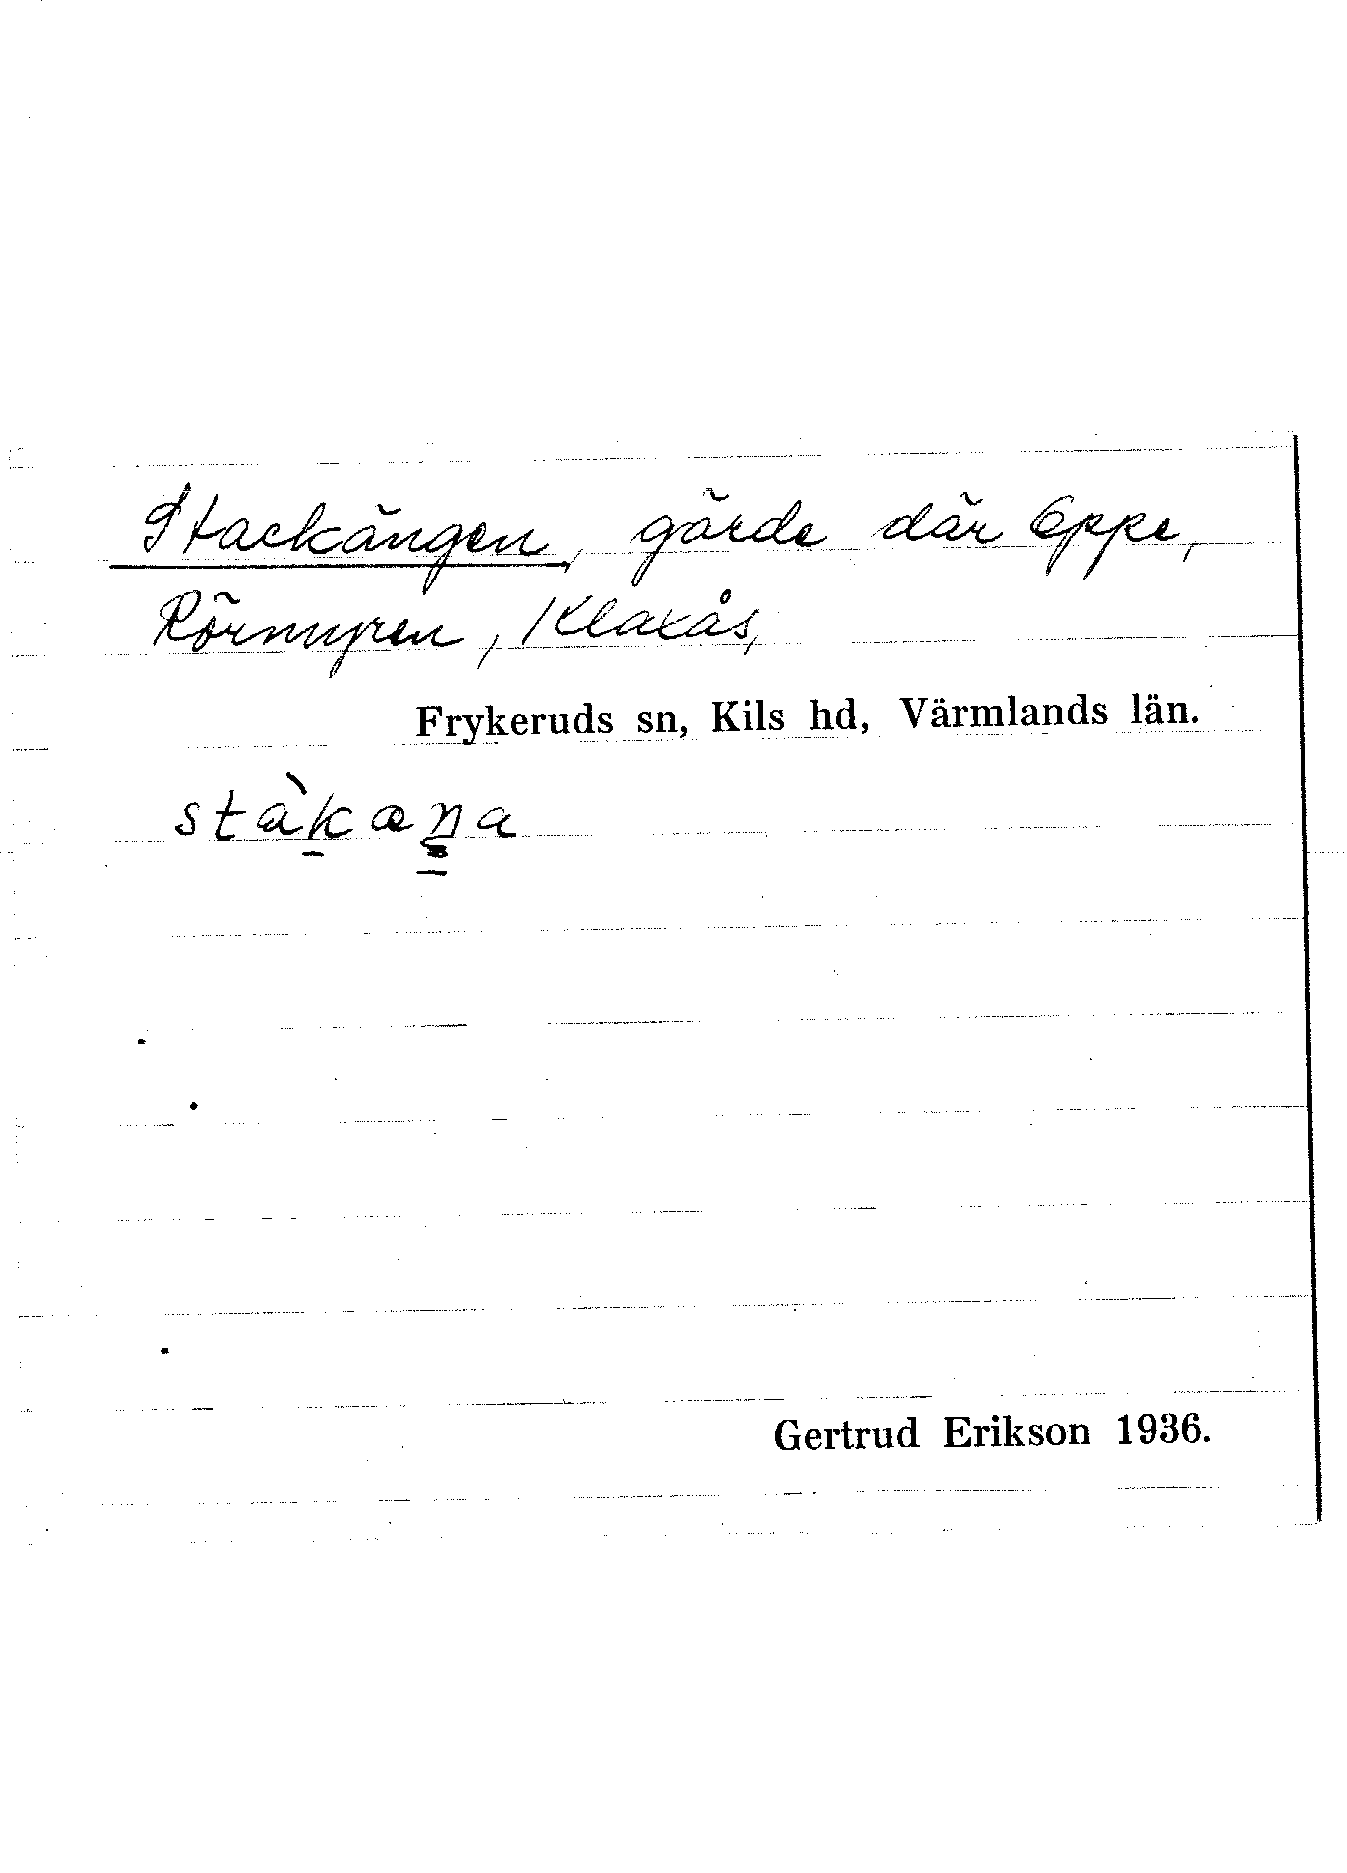 Stackängen, gärde där Eppe,
Rörmyren, Klaxås,
Frykeruds sn, Kils hd, Värmlands län.
Gertrud Erikson 1936.